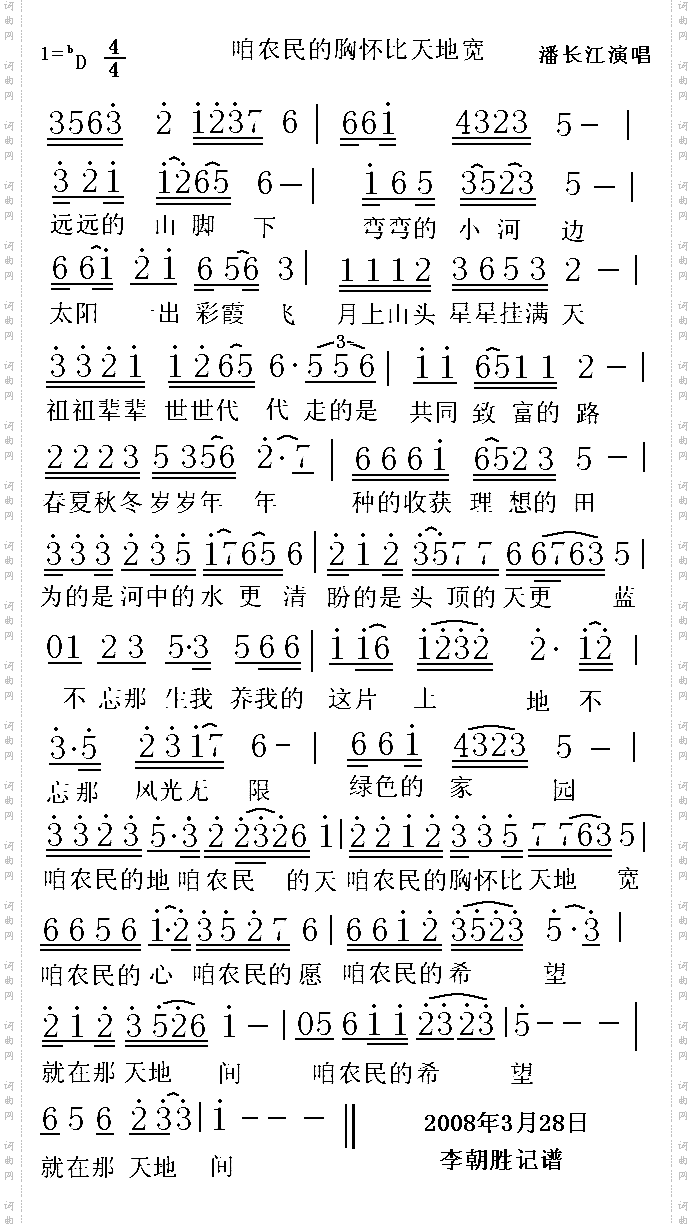 1=ᵇD 4/4 咱农民的胸怀比天地宽 潘长江演唱
3563 2 1237 6 | 661 4323 5 - |
3 21 1265 6 - | 1 65 3523 5 - |
远远的 山脚 下 弯弯的 小河 边
661 21 656 3 | 1112 3653 2 - |
太阳 一出 彩霞 飞 月上山头 星星挂满 天
3321 1265 6· 556 | 11 6511 2 - |
祖祖辈辈 世世代 代 走的是 共同 致富的 路
2223 5356 2·7 | 6661 6523 5 - |
春夏秋冬 岁岁年 年 种的收获 理想的 田
333 235 1765 6 | 212 3577 66763 5 |
为的是 河中的 水更 清 盼的是 头顶的 天更 蓝
01 23 5·3 566 | 1 16 1232 2· 12 |
不 忘那 生我 养我的 这片 土 地 不
3·5 2317 6 - | 661 4323 5 - |
忘那 风光无 限 绿色的 家 园
3323 5·3 22326 1 | 2212 335 7763 5 |
咱农民的 地 咱农民 的天 咱农民的 胸怀比 天地 宽
6656 1·2 3527 6 | 6612 3523 5·3 |
咱农民的 心 咱农民的 愿 咱农民的 希 望
212 3526 1 - | 05 611 2323 | 5 - - - |
就在那 天地 间 咱农民的 希 望
656 233 | 1 - - - ‖ 2008年3月28日
就在那 天地 间 李朝胜记谱
词曲网